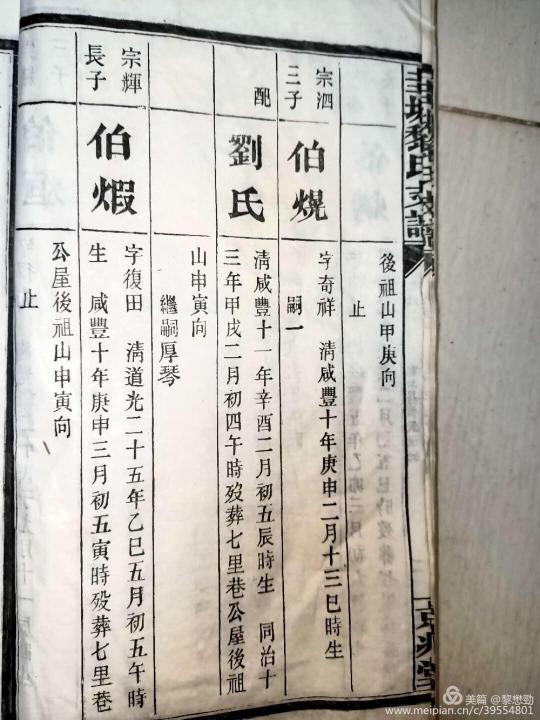 後祖山甲庚向
止
宗泗
三子
伯熀
字奇祥 清咸豐十年庚申二月十三巳時生
嗣一
配
劉氏
清咸豐十一年辛酉二月初五辰時生 同治十
三年甲戌二月初四午時歿葬七里巷公屋後祖
山申寅向
繼嗣厚琴
宗輝
長子
伯煆
字復田 清道光二十五年乙巳五月初五午時
生 咸豐十年庚申三月初五寅時歿葬七里巷
公屋後祖山申寅向
止
京兆堂
美篇 @黎懋勁
www.meipian.cn/c/39554801